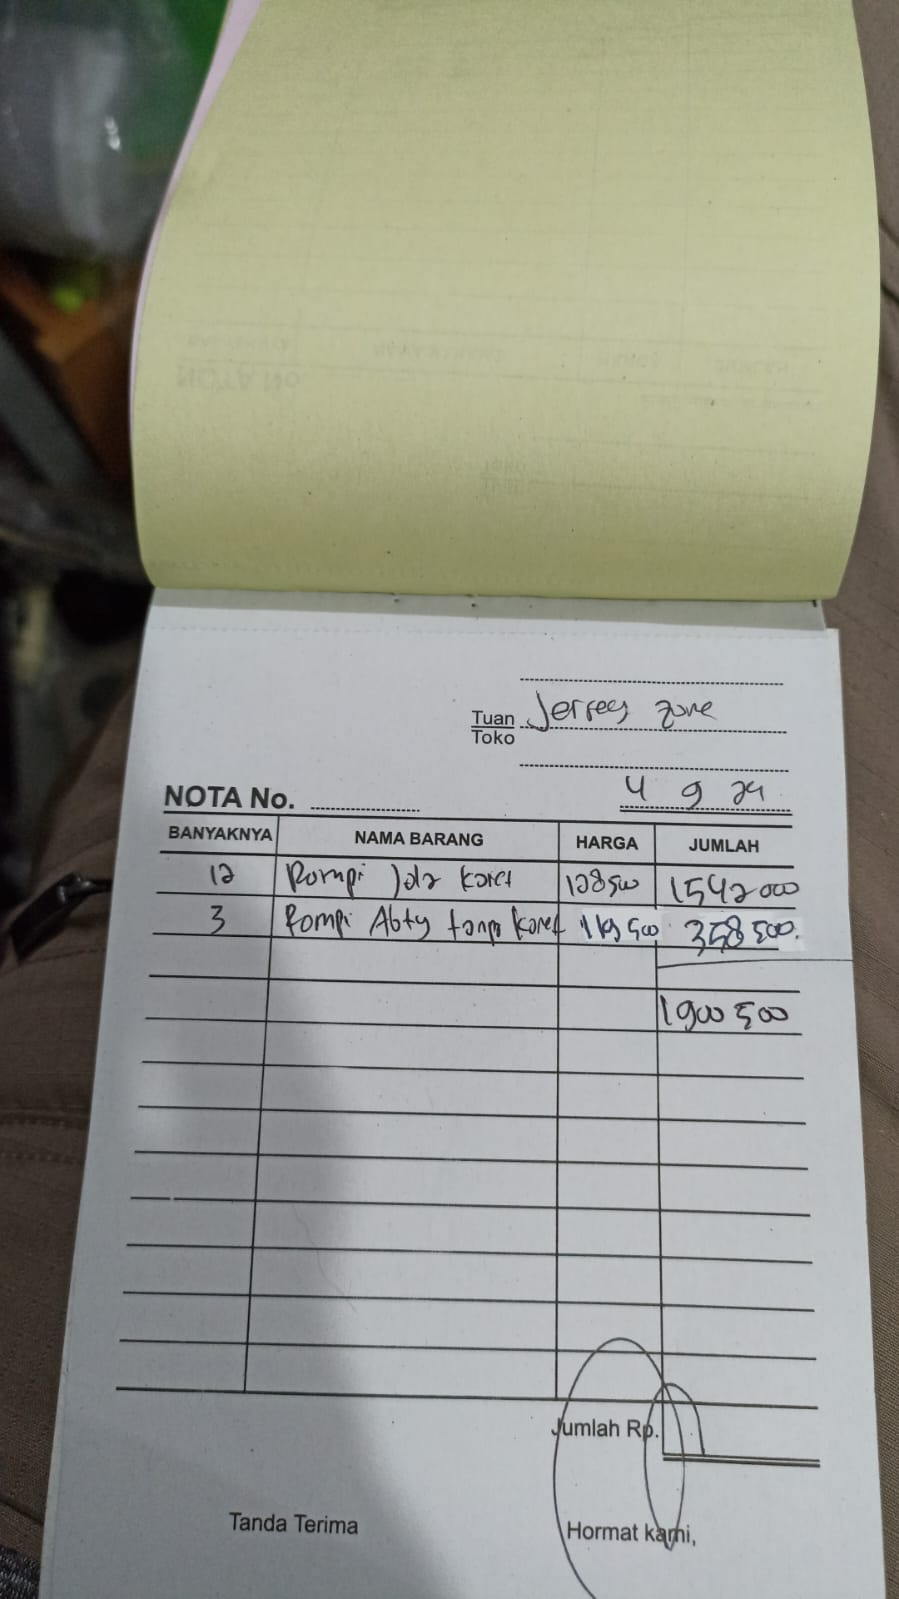 Tuan
Toko
Jersey zone
NOTA No.
4 9 24
BANYAKNYA NAMA BARANG HARGA JUMLAH
12 Rompi Jala karet 128 500 1542 000
3 Rompi tanpa karet 119 500 358 500.
1900 500
Jumlah Rp.
Tanda Terima Hormat kami,